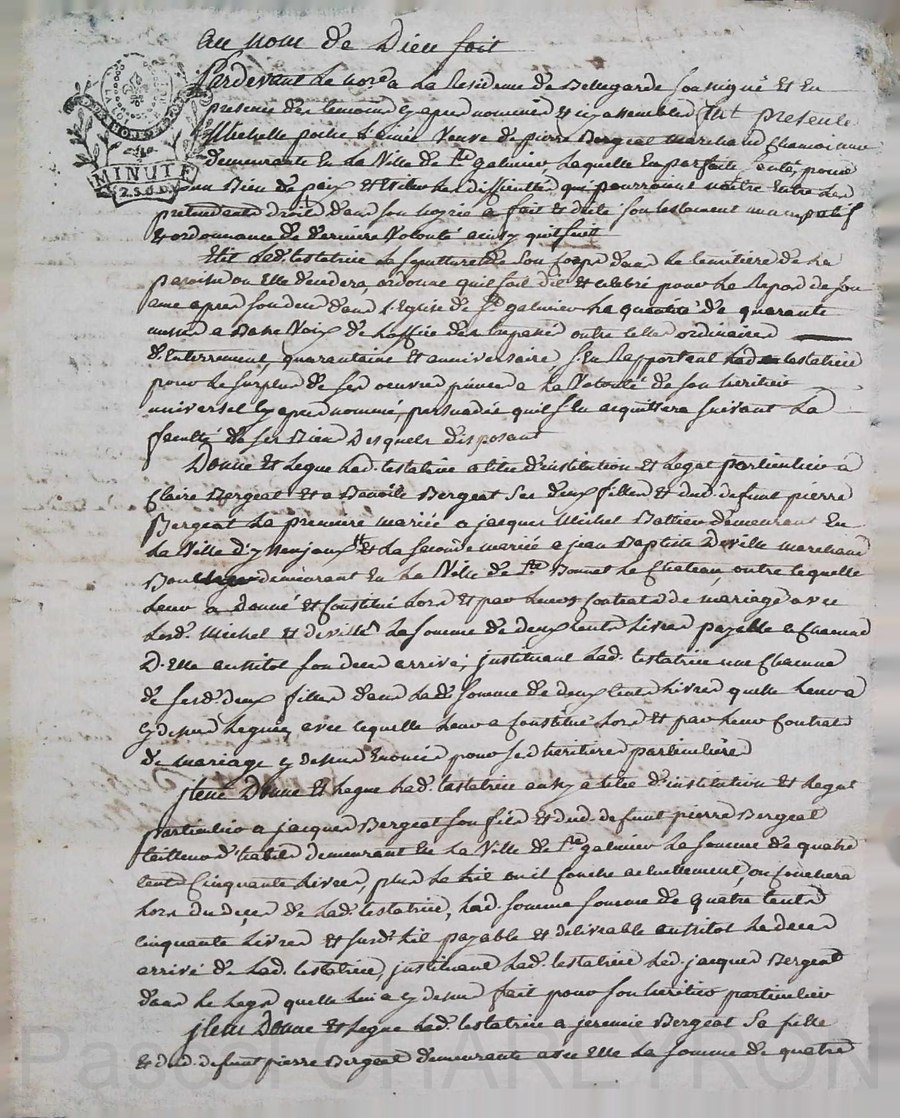 au nom de Dieu soit
Pardevant le no.re à la Residence de Bellegarde soussigné et en
presence des temoins cy apres nommés et icy assemblés fut presente
veuve de pierre Bergeat marchand
demeurante en la Ville de St galmier, laquelle en parfaite santé, pour
un Bien de paix et les difficultés qui pourroient naitre entre les
pretendants droits dans son hoyrie a fait et dicté son testament nuncupatif
et ordonnance de derniere Volonté ainsy qu'il suit
Elit lad. testatrice la sepulture de son corps dans le cemitiere de la
paroisse ou Elle decedera, ordonne qu'il soit dit et celebré pour le Repos de son
ame apres son deces dans l'Eglise de St galmier la quantité de quarante
messes a Basse Voix de l'office des trepassés outre celles ordinaires
d'enterrement, quarantaine et anniversaire, s'en Rapportant lad. testatrice
pour le surplus de ses oeuvres pieuses a la Volonté de son heritier
universel cy apres nommé, persuadée qu'il s'en acquittera suivant la
faculté de ses Biens Desquels disposant
Donne et legue lad. testatrice a titre d'institution et legat particulier a
Claire Bergeat et a Benoite Bergeat ses deux filles et dud. defunt pierre
Bergeat la premiere mariée a jacques Michel demeurant En
la Ville et la seconde mariée a jean Baptiste Deville marchand
demeurant en la Ville de St Bonnet le Chateau, outre ce quelle
leur a Donné et Constitué lors et par leurs Contrats de mariage avec
lesd. Michel et deville la somme de deux cents livres payable a chacune
D'Elle aussitot son deces arrivé; instituant lad. testatrice une chacune
de sesd. deux filles dans lad. somme de deux cents livres quelle leur a
cy dessus leguée, avec ce quelle leur a Constitué lors et par leur Contrat
de mariage cy dessus Enoncé pour ses heritieres particulières
jtem Donne et legue lad. testatrice aussy a titre d'institution et legat
particulier a jacques Bergeat son fils et dud. defunt pierre Bergeat
tailleur d'habits demeurant en la Ville de St galmier la somme de quatre
cents Cinquante livres, plus le lit ou il couche actuellement, ou couchera
lors du deces de lad. testatrice, lad. somme somme de quatre cents
cinquante livres et susd. lit payable et delivrable aussitot le deces
arrivé de lad. testatrice, instituant lad. testatrice led. jacques Bergeat
dans le legs quelle luy a cy dessus fait pour son heritier particulier
jtem Donne et legue lad. testatrice a jeremie Bergeat sa fille
et dud. defunt pierre Bergeat demeurante avec Elle la somme de quatre
MINUTE
2.S.6.D.
Pascal CHAREYRON